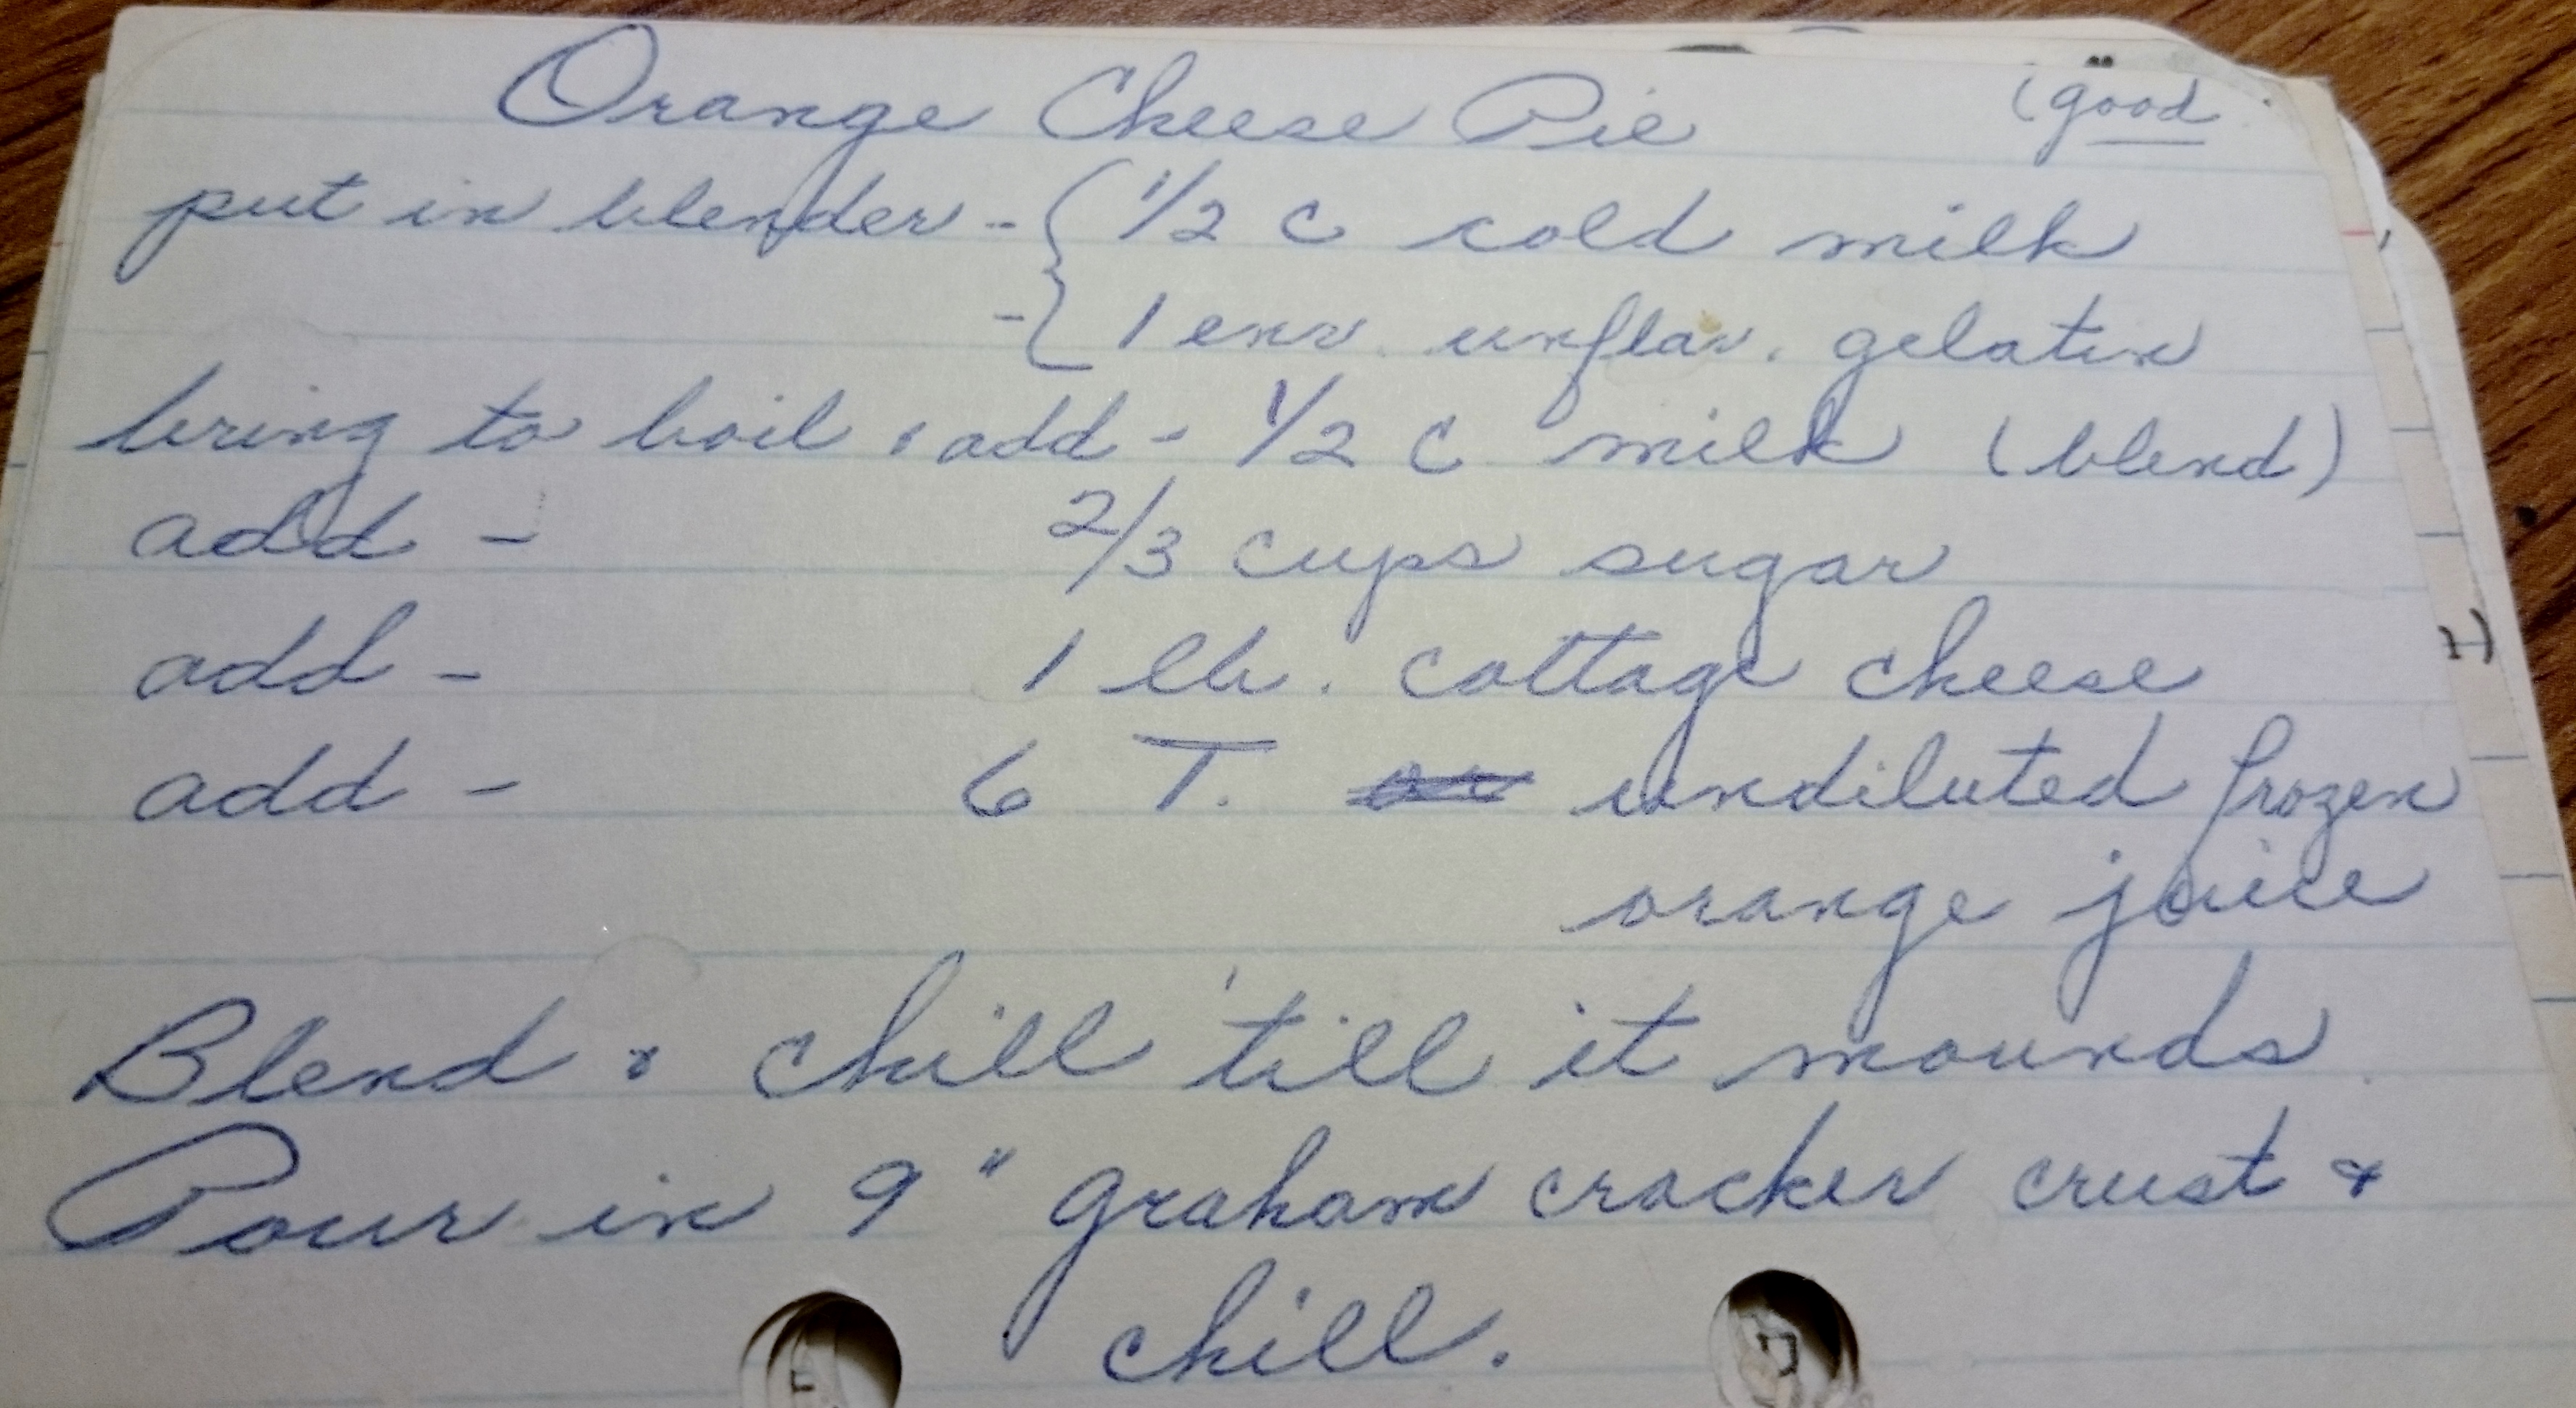 Orange Cheese Pie (good
put in blender - { 1/2 c cold milk
- 1 env. unflav. gelatin
bring to boil & add - 1/2 c milk (blend)
add - 2/3 cups sugar
add - 1 lb. cottage cheese
add - 6 T. undiluted frozen
orange juice
Blend & chill 'till it mounds.
Pour in 9" graham cracker crust &
chill.